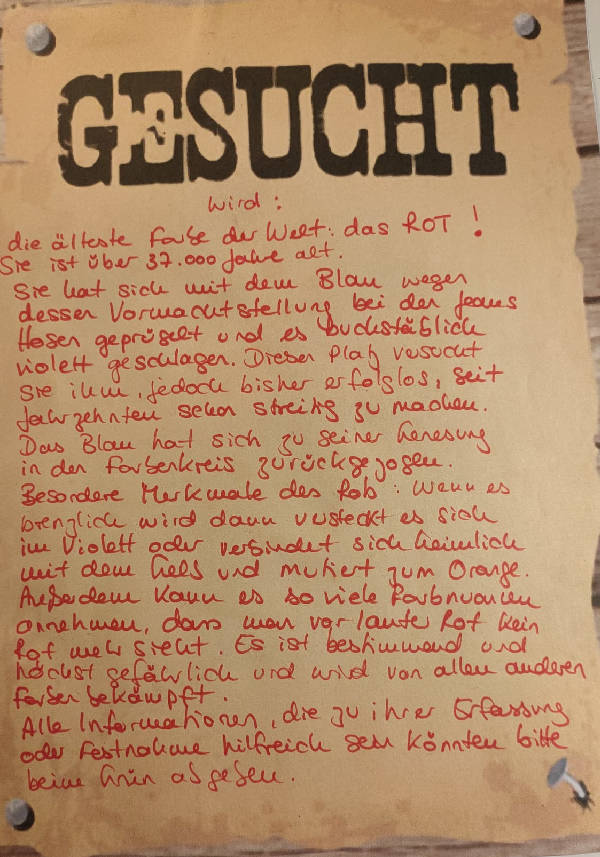 GESUCHT
wird:
die älteste Farbe der Welt: das ROT!
Sie ist über 37.000 Jahre alt.
Sie hat sich mit dem Blau wegen
dessen Vormachtstellung bei den Jeans
Hosen geprügelt und es buchstäblich
violett geschlagen. Diesen Platz versucht
sie ihm, jedoch bisher erfolglos, seit
Jahrzehnten schon streitig zu machen.
Das Blau hat sich zu seiner Genesung
in den Farbenkreis zurückgezogen.
Besondere Merkmale des Rots: Wenn es
brenzlich wird dann versteckt es sich
im Violett oder verbindet sich heimlich
mit dem Gelb und mutiert zum Orange.
Außerdem kann es so viele Farbnuancen
annehmen, dass man vor lauter Rot kein
Rot mehr sieht. Es ist bestimmend und
höchst gefährlich und wird von allen anderen
Farben bekämpft.
Alle Informationen, die zu ihrer Erfassung
oder Festnahme hilfreich sein könnten bitte
beim Grün abgeben.